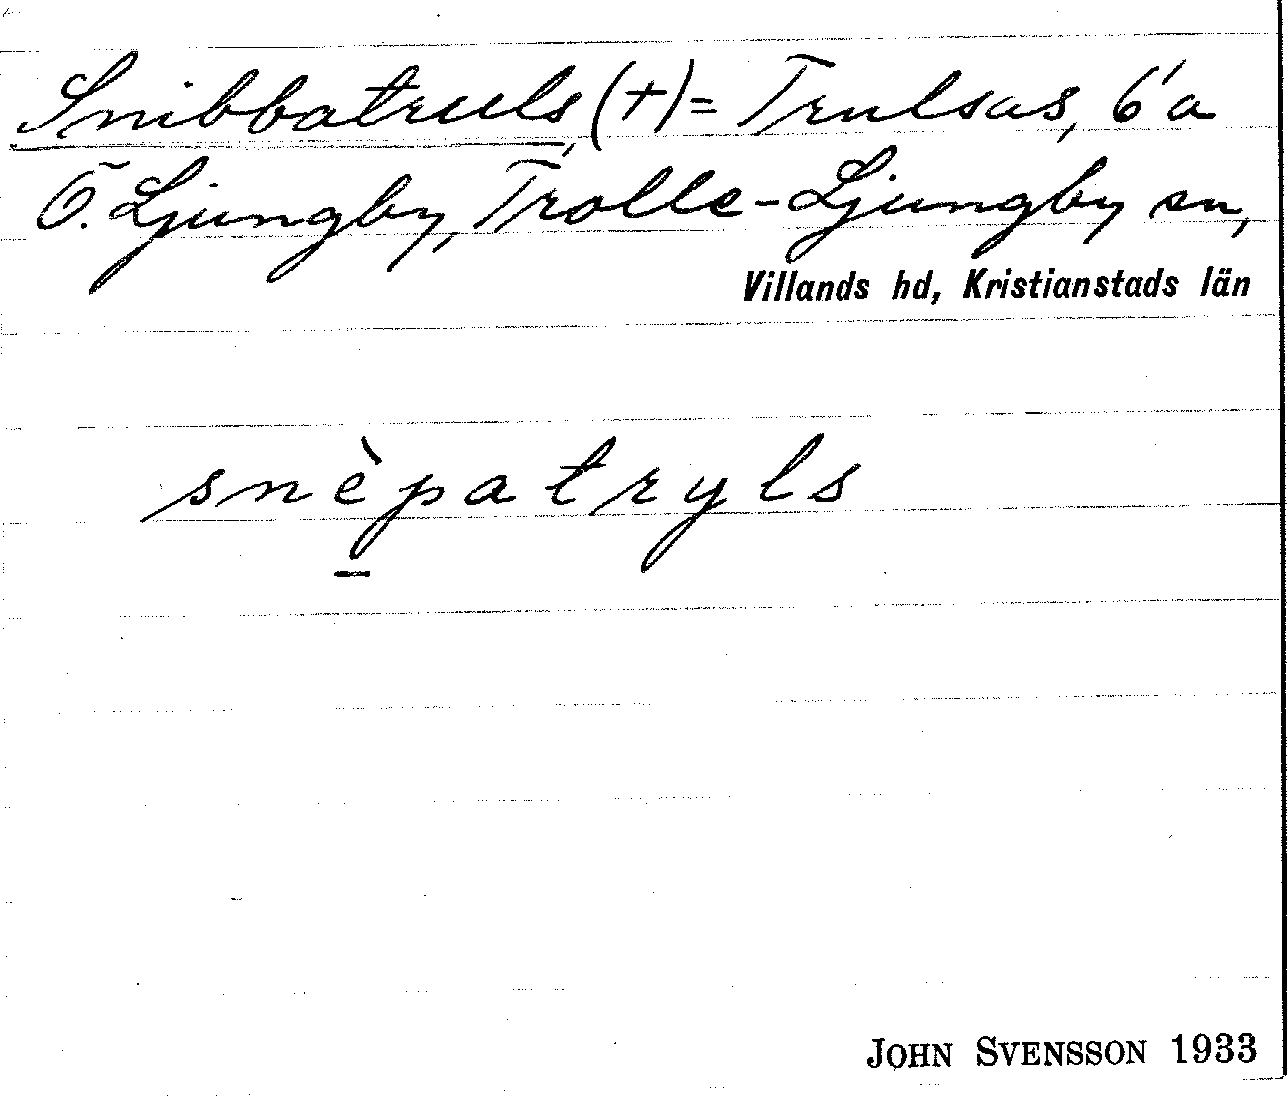 Snibbatruls, (+) = Trulsas, 6'a
Ö. Ljungby, Trolle-Ljungby sn,
Villands hd, Kristianstads län
snèpatryls
JOHN SVENSSON 1933